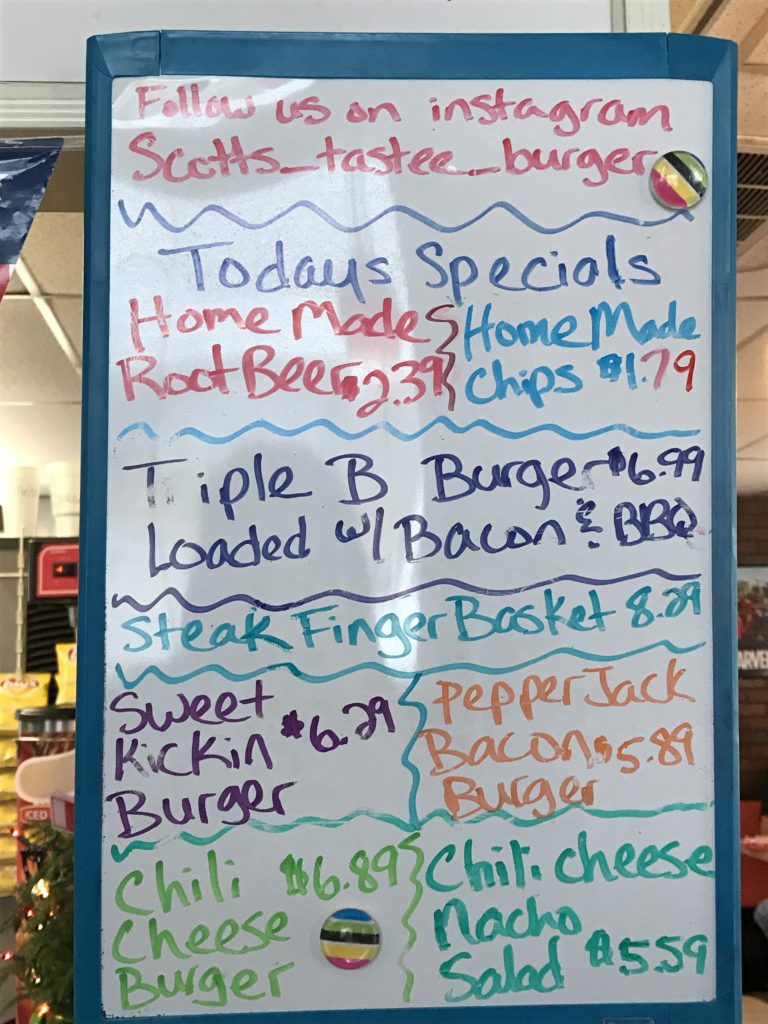 Follow us on instagram
Scotts_tastee_burger
Todays Specials
Home Made
Root Beer $2.39
Home Made
Chips $1.79
Tiple B Burger $6.99
Loaded w/ Bacon & BBQ
Steak Finger Basket 8.29
Sweet
Kickin $6.29
Burger
Pepper Jack
Bacon $5.89
Burger
Chili $6.89
Cheese
Burger
Chili cheese
Nacho
Salad $5.59
ICED